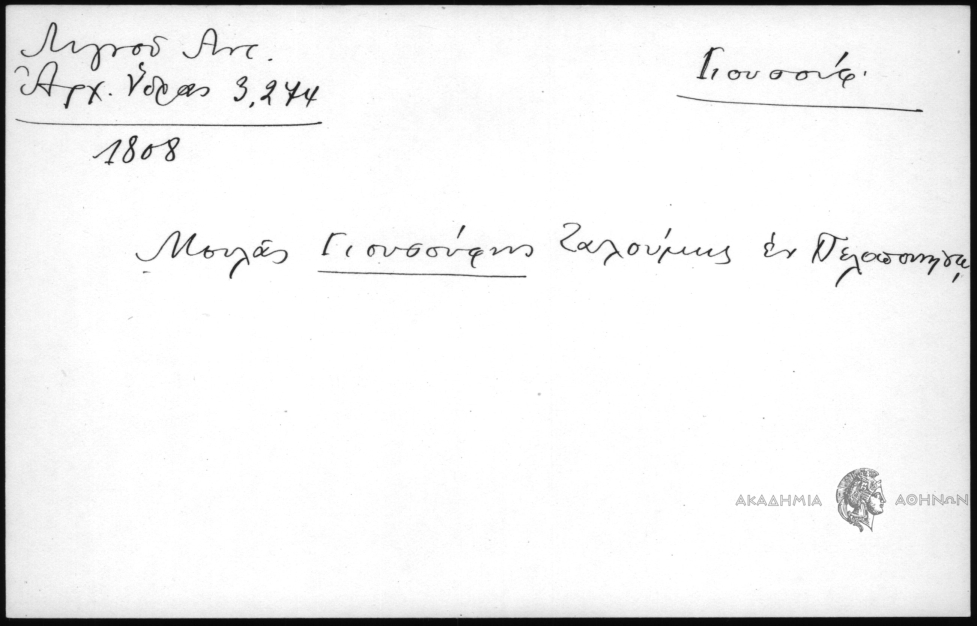 Λιγνού Αντ.
Αρχ. Ύδρας 3,274
1808
Γιουσούφ.
Μουλάς Γιουσούφης Ζαλούμης εν Πελοποννήσω
ΑΚΑΔΗΜΙΑ ΑΘΗΝΩΝ